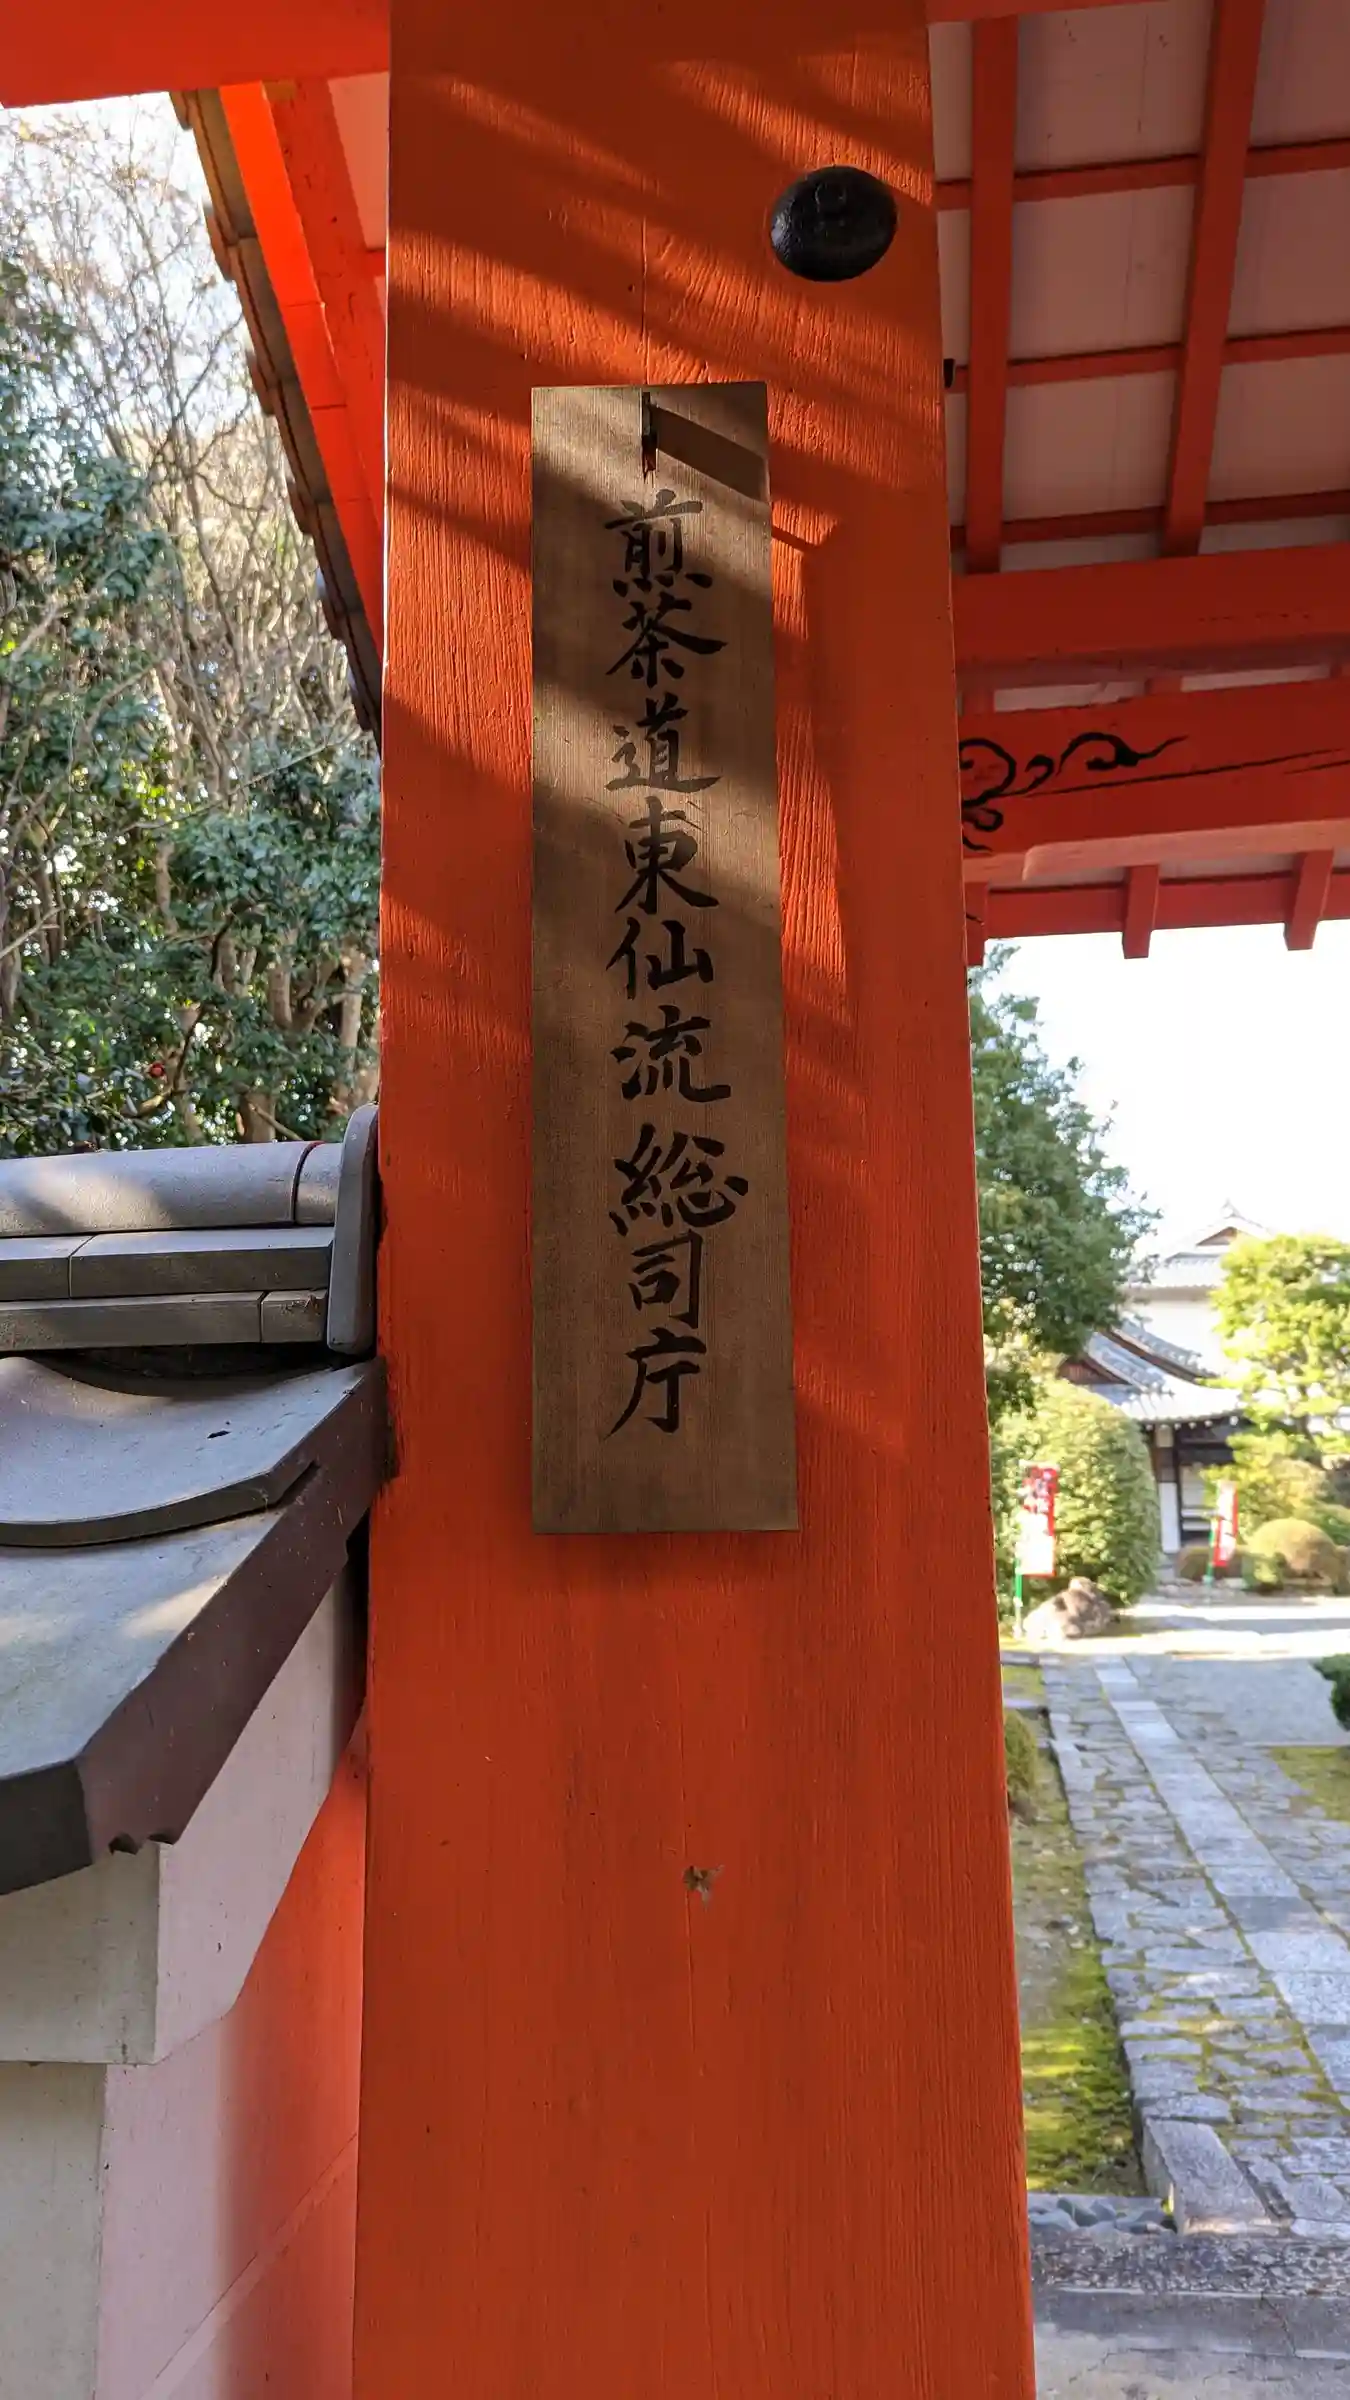 煎茶道東仙流総司庁